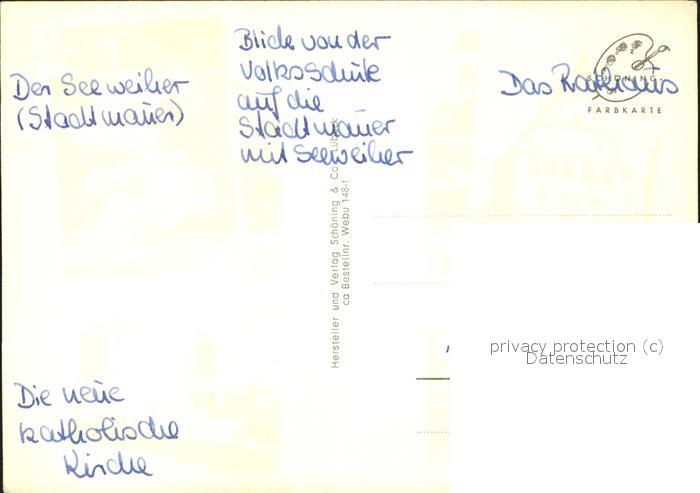 Der Seeweiher
(Stadtmauer)
Blick von der
Volksschule
auf die
Stadtmauer
mit Seeweiher
Das Rathaus
SCHÖNING
FARBKARTE
Hersteller und Verlag Schöning & Co., Lübeck
ca Bestellnr. Webu 148-f
privacy protection (c)
Datenschutz
Die neue
katholische
Kirche